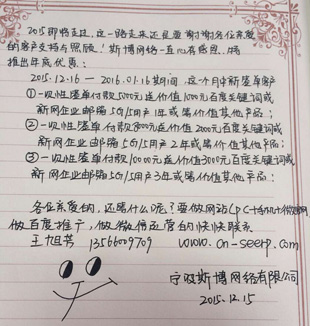 2015即将走过,这一路走来还是要谢谢各位亲爱
的客户支持与照顾!斯博网络一直心有感恩,特
推出年底优惠:
2015.12.16—2016.01.16期间,这个月中新签单客户
①一次性签单付款5000元送价值1000元百度关键词或
新网企业邮箱5G/5用户1年或等价值其他产品;
②一次性签单付款8000元送价值2000元百度关键词或
新网企业邮箱5G/5用户2年或等价值其他产品;
③一次性签单付款10000元送价值3000元百度关键词或
新网企业邮箱5G/5用户3年或等价值其他产品;
各位亲爱的,还等什么呢?要做网站(PC+手机+微官网)
做百度推广,做微信运营的快快联系
王旭芳 13566009709 www.cn-seerp.com
宁波斯博网络有限公司
2015.12.15